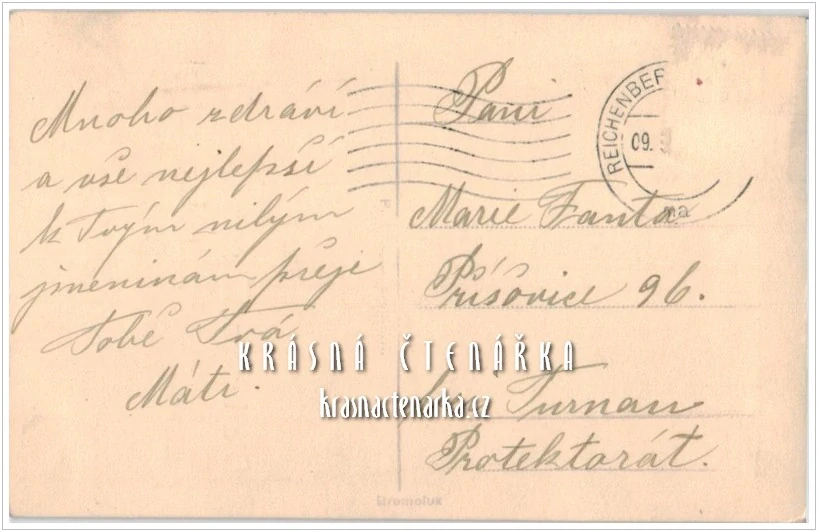 Mnoho zdraví
a vše nejlepší
k Tvým milým
jmeninám přeje
Tobě Tvá
Máti.
Paní
Marie Fanta
Příšovice 96.
Turnau
Protektorát.
REICHENBER
09.
na
KRÁSNÁ ČTENÁŘKA
krasnactenarka.cz